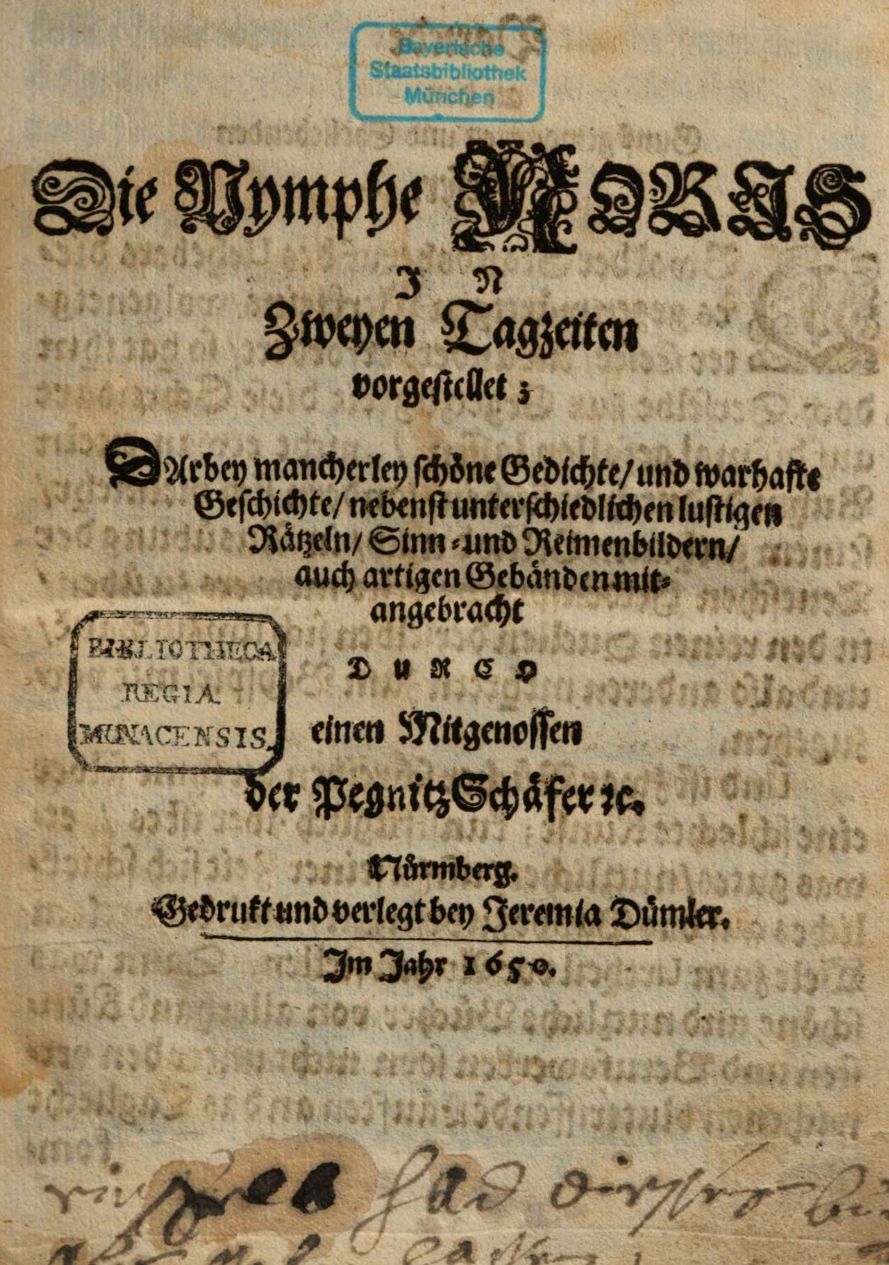 Bayerische
Staatsbibliothek
München
Die Nymphe NORIS
IN
Zweyen Tagzeiten
vorgestellet;
DArbey mancherley schöne Gedichte/ und warhafte
Geschichte/ nebenst unterschiedlichen lustigen
Rätzeln/ Sinn-und Reimenbildern/
auch artigen Gebänden mit-
angebracht
DURCH
einen Mitgenossen
der PegnitzSchäfer ꝛc.
BIBLIOTHECA
REGIA
MONACENSIS.
Nürmberg.
Gedrukt und verlegt bey Jeremia Dümler.
Im Jahr 1650.
had